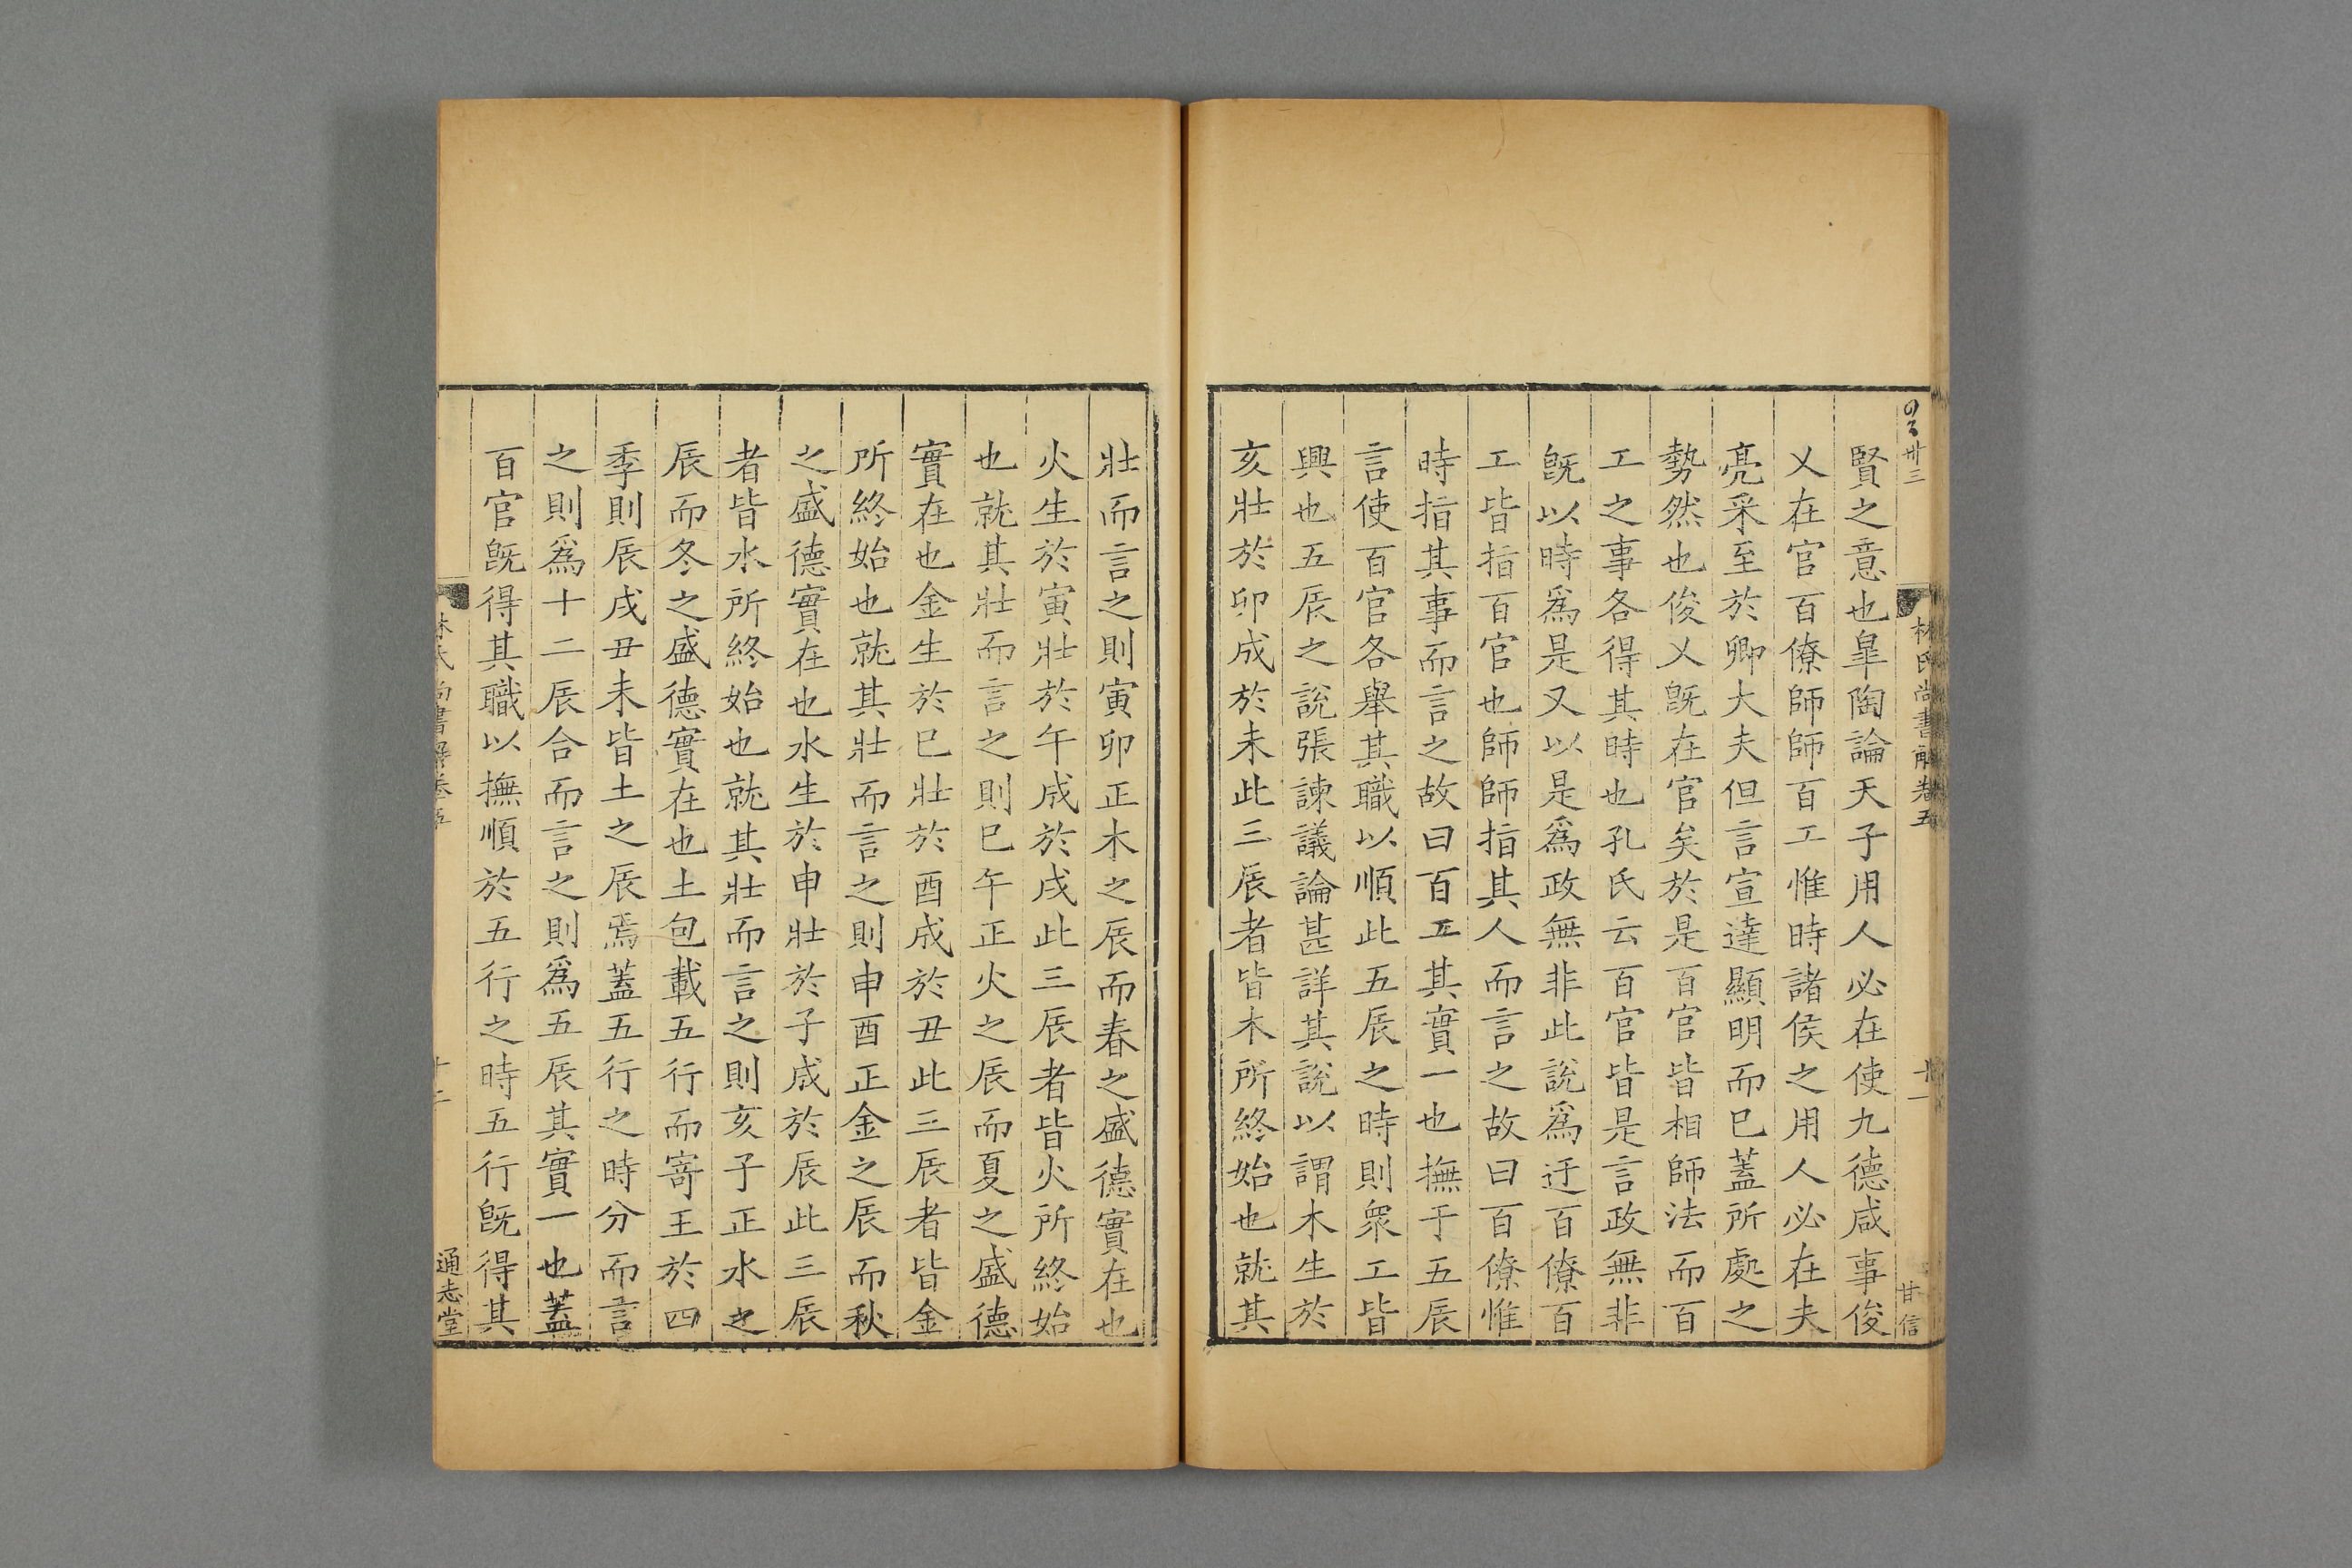 卅三
林氏尚書解卷五
十一
甘信
賢之意也臯陶論天子用人必在使九德咸事俊
乂在官百僚師師百工惟時諸侯之用人必在夫
亮采至於卿大夫但言宣達顯明而已蓋所處之
勢然也俊乂旣在官矣於是百官皆相師法而百
工之事各得其時也孔氏云百官皆是言政無非
旣以時爲是又以是爲政無非此說爲迂百僚百
工皆指百官也師師指其人而言之故曰百僚惟
時指其事而言之故曰百工其實一也撫于五辰
言使百官各舉其職以順此五辰之時則衆工皆
興也五辰之說張諫議論甚詳其說以謂木生於
亥壯於卯成於未此三辰者皆木所終始也就其
壯而言之則寅卯正木之辰而春之盛德實在也
火生於寅壯於午成於戌此三辰者皆火所終始
也就其壯而言之則巳午正火之辰而夏之盛德
實在也金生於巳壯於酉成於丑此三辰者皆金
所終始也就其壯而言之則申酉正金之辰而秋
之盛德實在也水生於申壯於子成於辰此三辰
者皆水所終始也就其壯而言之則亥子正水之
辰而冬之盛德實在也土包載五行而寄王於四
季則辰戌丑未皆土之辰焉蓋五行之時分而言
之則爲十二辰合而言之則爲五辰其實一也蓋
百官旣得其職以撫順於五行之時五行旣得其
尚書解卷五
十二
通志堂